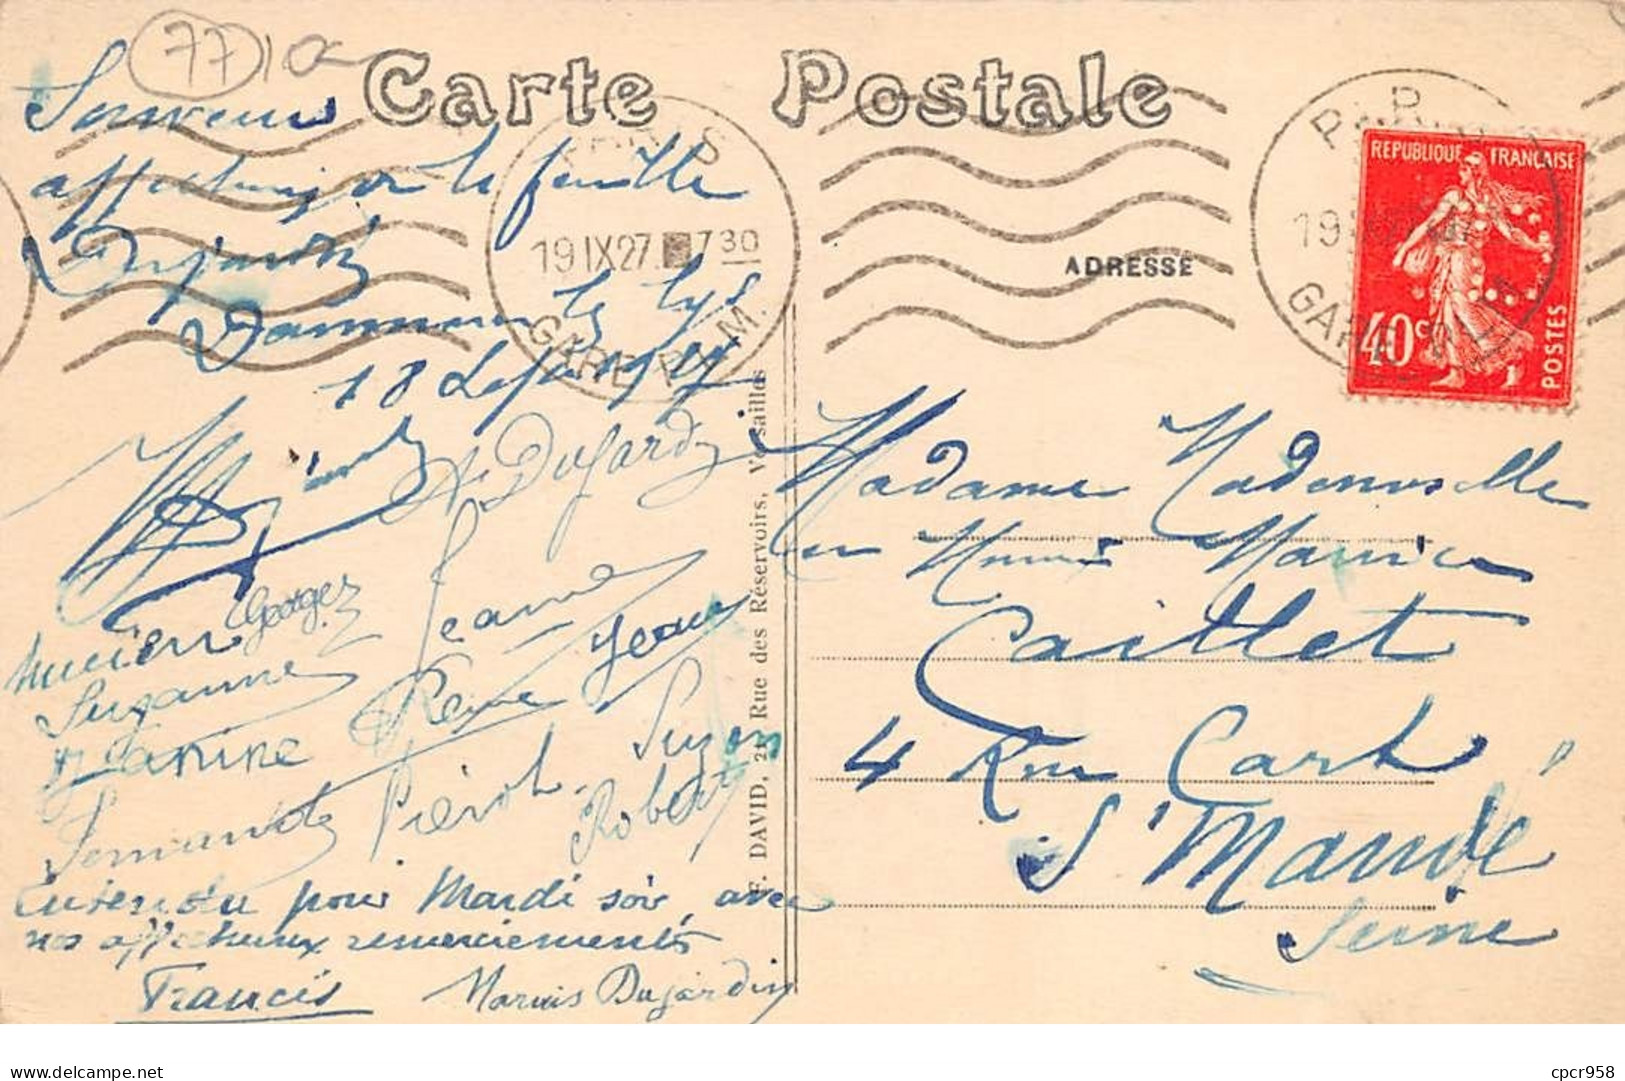 77
Carte Postale
Souvenir
affectueux de la famille
Dujardin
Dammarie les Lys
18
PARIS
19 IX 27 7 30
GARE P.L.M.
PARIS
19
GARE P.L.M.
REPUBLIQUE FRANÇAISE
40c
POSTES
ADRESSE
Dujardin
Georges
Lucien
Jeanne
Suzanne
Jean
Renée
Janine
Suzon
Fernande
Pierrot
Robert
Entendu pour Mardi soir avec
nos affectueux remerciements
Francis
Dujardin
F. DAVID, 21 Rue des Réservoirs, Versailles
Madame Mademoiselle
Maurice
Caillet
4 Rue Cart
St Mandé
Seine
cpcr958